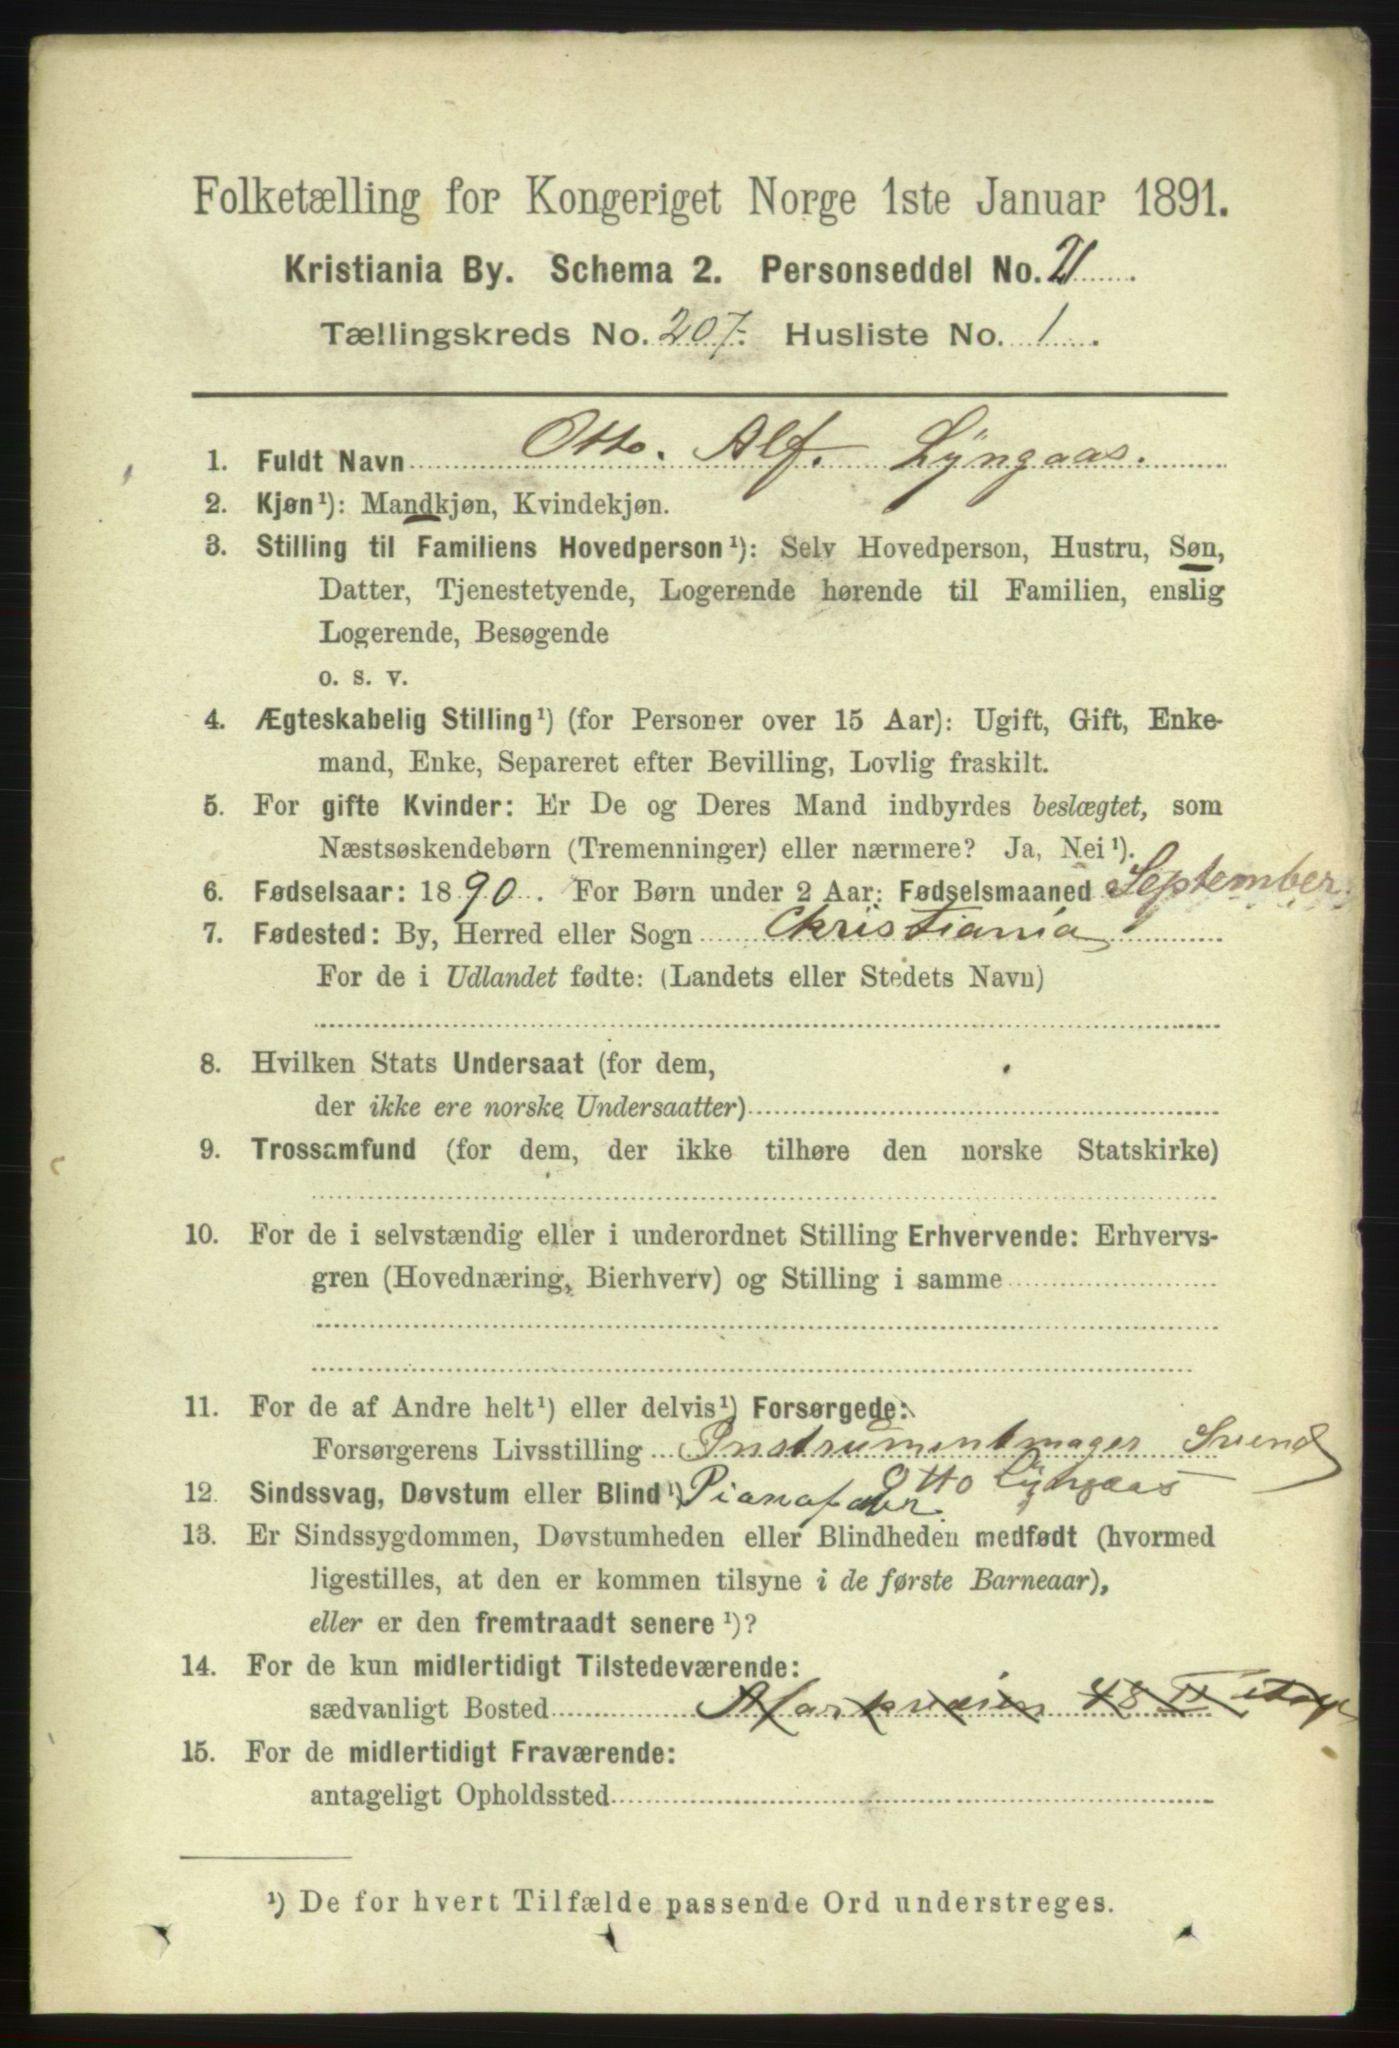 Folketælling for Kongeriget Norge 1ste Januar 1891.
Kristiania By. Schema 2. Personseddel No. 21
Tællingskreds No. 207. Husliste No. 1.
1. Fuldt Navn Otto. Alf. Lÿngaas.
2. Kjøn¹): Mandkjøn, Kvindekjøn.
3. Stilling til Familiens Hovedperson¹): Selv Hovedperson, Hustru, Søn,
Datter, Tjenestetyende, Logerende hørende til Familien, enslig
Logerende, Besøgende
o. s. v.
4. Ægteskabelig Stilling¹) (for Personer over 15 Aar): Ugift, Gift, Enke-
mand, Enke, Separeret efter Bevilling, Lovlig fraskilt.
5. For gifte Kvinder: Er De og Deres Mand indbyrdes beslægtet, som
Næstsøskendebørn (Tremenninger) eller nærmere? Ja, Nei¹).
6. Fødselsaar: 1890. For Børn under 2 Aar: Fødselsmaaned September.
7. Fødested: By, Herred eller Sogn Christiania
For de i Udlandet fødte: (Landets eller Stedets Navn)
8. Hvilken Stats Undersaat (for dem,
der ikke ere norske Undersaatter)
9. Trossamfund (for dem, der ikke tilhøre den norske Statskirke)
10. For de i selvstændig eller i underordnet Stilling Erhvervende: Erhvervs-
gren (Hovednæring, Bierhverv) og Stilling i samme
11. For de af Andre helt¹) eller delvis¹) Forsørgede:
Forsørgerens Livsstilling Instrumentmager Svend
Otto Lÿngaas
12. Sindssvag, Døvstum eller Blind¹) Pianofabr.
13. Er Sindssygdommen, Døvstumheden eller Blindheden medfødt (hvormed
ligestilles, at den er kommen tilsyne i de første Barneaar),
eller er den fremtraadt senere¹)?
14. For de kun midlertidigt Tilstedeværende:
sædvanligt Bosted Markveien 48 II etage
15. For de midlertidigt Fraværende:
antageligt Opholdssted
¹) De for hvert Tilfælde passende Ord understreges.